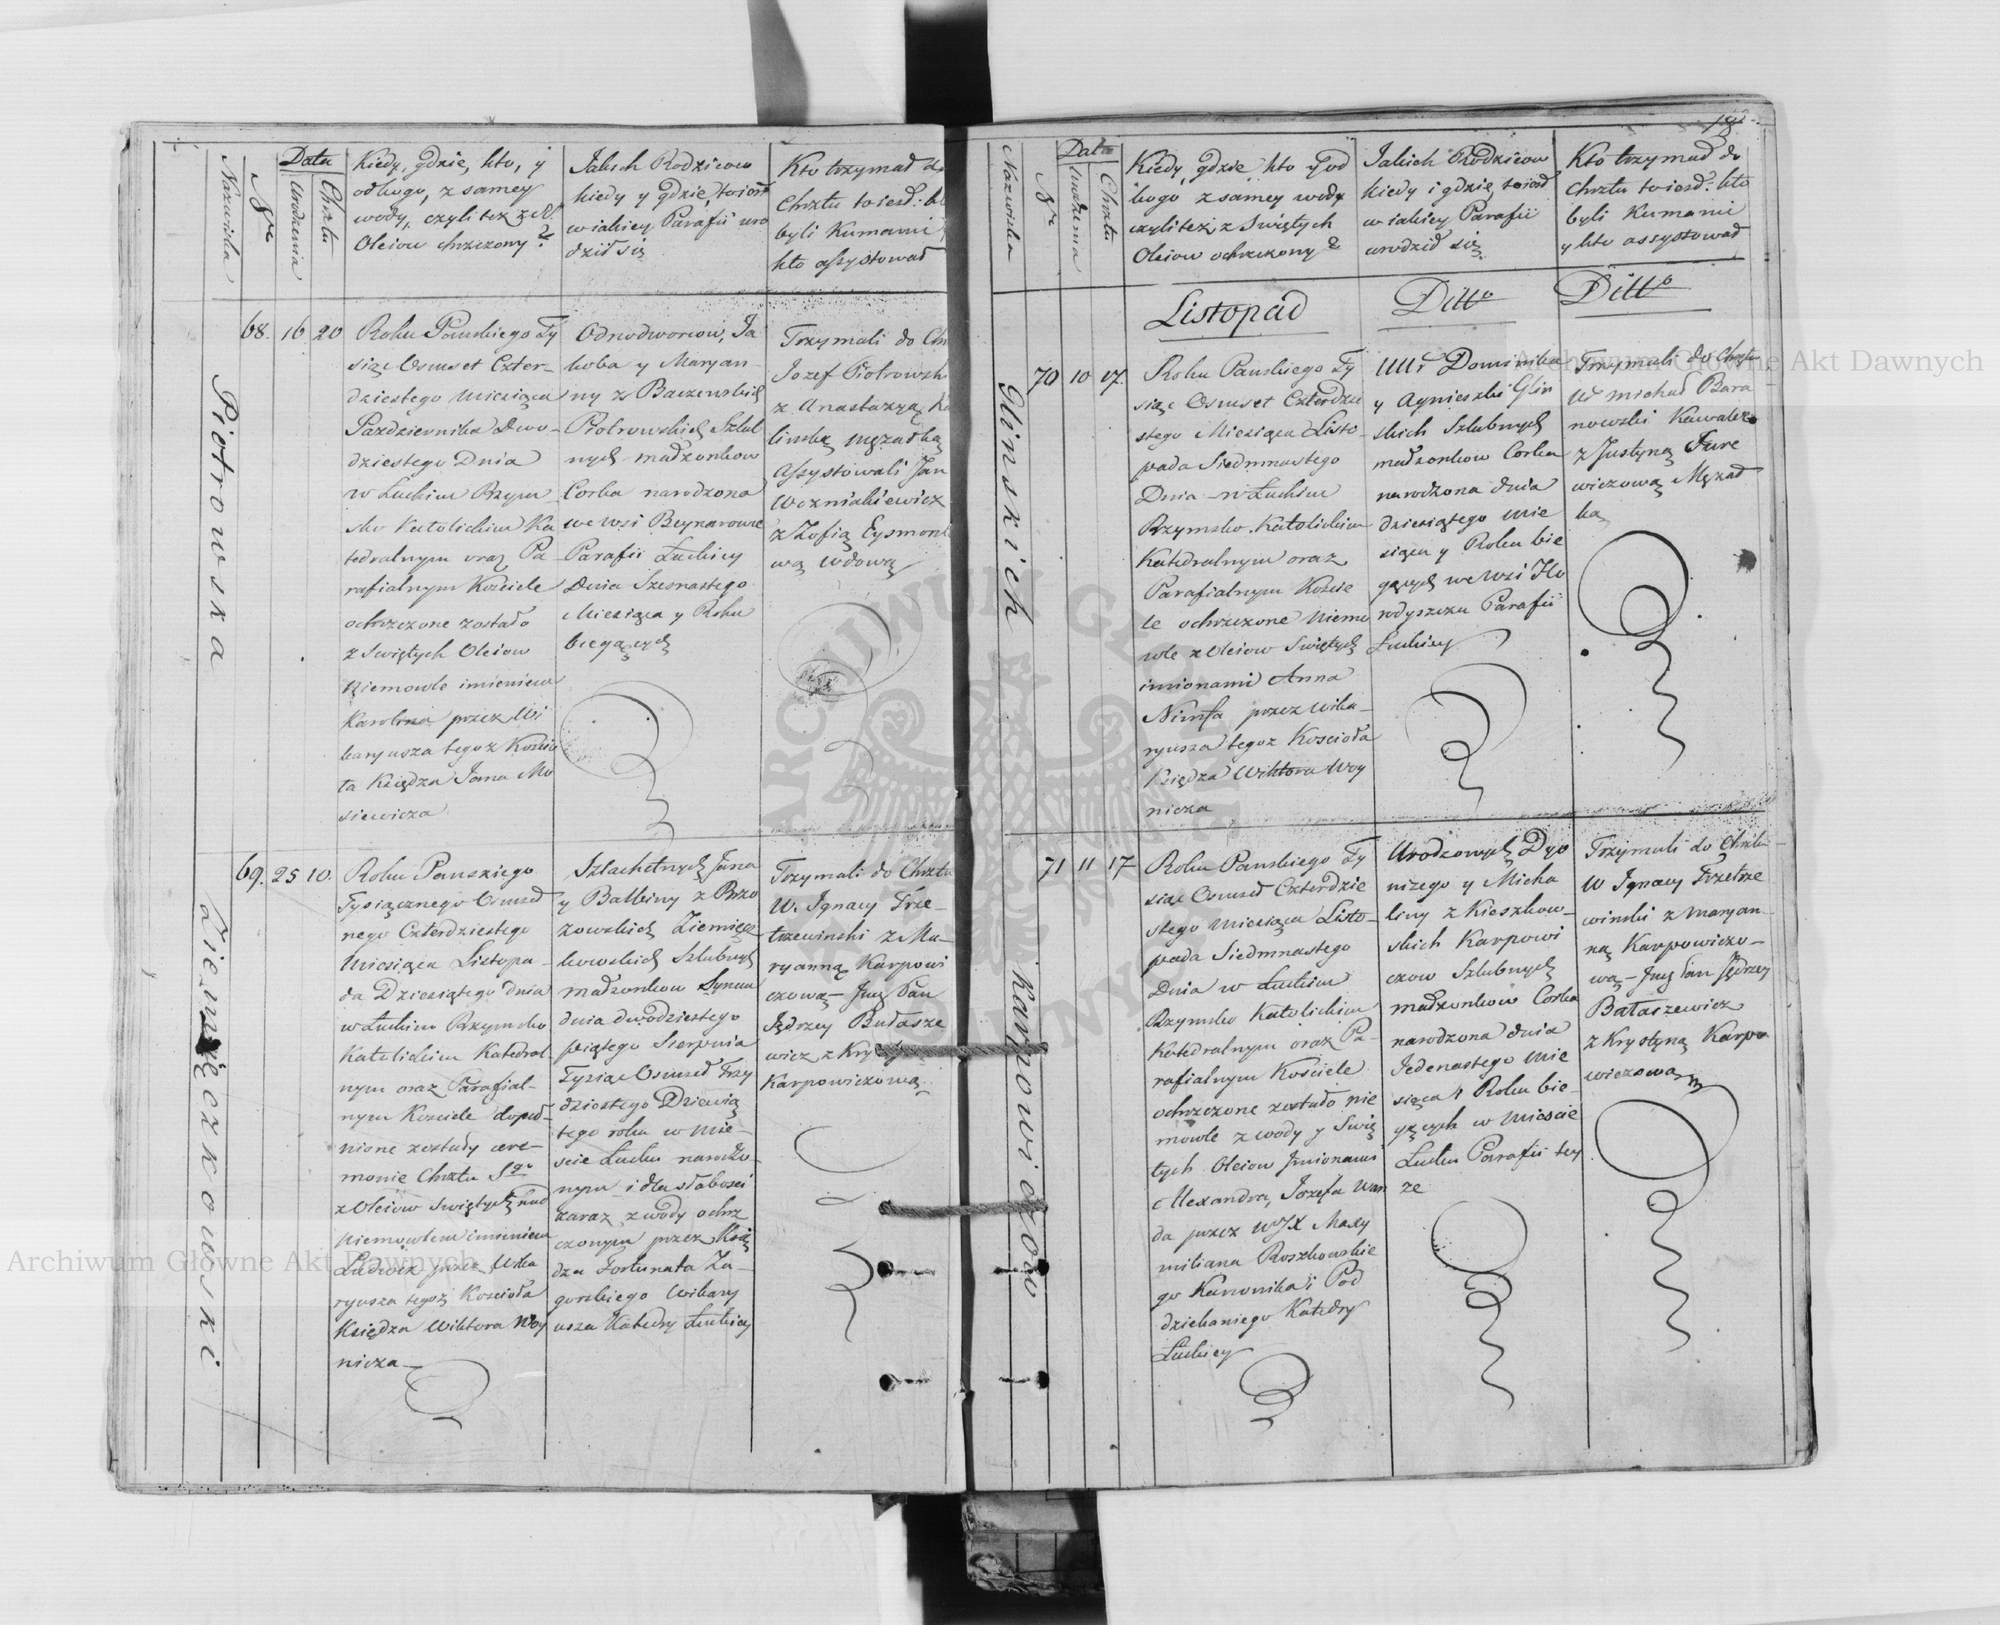 Nazwiska
Nr
Data
Urodzenia
Chrztu
Kiedy, gdzie, kto, y
od kogo, z samey
wody, czyli też z S.
Oleiow chrzczony?
Jakich Rodzicow
kiedy y gdzie, to iest
w iakiey Parafii uro
dził się
Kto trzymał do
Chrztu to iest:
byli Kumami
kto assystował
Piotrowska
68. 16 20
Roku Pańskiego Ty
siąc Osmset Czter-
dziestego Miesiąca
Pazdziernika Dwu-
dziestego Dnia
w Łuckim Rzym
sko Katolickim Ka
tedralnym oraz Pa
rafialnym Kościele
ochrzczone zostało
z Swiętych Oleiow
Niemowle imieniem
Karolina przez Wi
karyusza tegoż Kościo
ła Księdza Jana Mo
siewicza
Odnodworcow, Ja
koba y Maryan-
ny z Baczenskich
Piotrowskich Szlub
nych małżonkow
Corka narodzona
we wsi Beynarowce
Parafii Łuckiey
Dnia Szesnastego
Miesiąca y Roku
biegących
Trzymali do Ch
Jozef Piotrowsk
z Anastazyą Ka
linską mężatką
Assystowali Jan
Wozniakiewicz
z Zofią Eysmont
wą wdową
Ziemięczkowski
69. 25 10.
Roku Panskiego
Tysiącznego Osmset
nego Czterdziestego
Miesiąca Listopa-
da Dziesiątego dnia
w Łuckim Rzymsko
Katolickim Katedral-
nym oraz Parafial-
nym Kosciele dopeł-
nione zostały cere-
monie Chrztu Sgo
z Oleiow Swiętych nad
Niemowlem imieniem
Ludwik przez Wika
ryusza tegoż Kościoła
Księdza Wiktora Woy
nicza
Szlachetnych Jana
y Balbiny z Brzo
zowskich Ziemięcz
kowskich Szlubnych
małżonkow Synem
dnia dwudziestego
piątego Sierpnia
Tysiąc Osmset Trzy
dziestego Dziewią
tego roku w Mie-
scie Łucku narodzo-
nym i dla słabosci
zaraz z wody ochrz
czonym przez Księ
dza Fortunata Za-
gorskiego Wikary
usza Katedry Łuckiey
Trzymali do Chrztu
W. Ignacy Trze-
trzewinski z Ma-
ryanną Karpowi
czową- Jmę Pan
Jędrzey Bułasze
wicz z Kry
Karpowiczową
18.
Nazwiska
Nr
Data
Urodzenia
Chrztu
Kiedy, gdzie kto y od
kogo z samey wody
czyli też z Swiętych
Oleiow ochrzczony?
Jakich Rodzicow
kiedy i gdzie to iest
w iakiey Parafii
urodził się
Kto trzymał do
Chrztu to iest: kto
byli Kumami
y kto assystował
Listopad
Ditto
Ditto
Glinskich
70 10 17.
Roku Panskiego Ty
siąc Osmset Czterdzie
stego Miesiąca Listo
pada Siedmnastego
Dnia w Łuckim
Rzymsko Katolickim
Katedralnym oraz
Parafialnym Koscie
le ochrzczone Niemo
wle z Oleiow Swiętych
imionami Anna
Nimfa przez Wika-
ryusza tegoz Koscioła
Księdza Wiktora Woy
nicza
Dominika
y Agnieszki Glin
skich Szlubnych
małżonkow Corka
narodzona dnia
dziesiątego Mie
siąca y Roku bie
gących we Wsi Ho
rodyszczu Parafii
Łuckiey
Trzymali do Chrztu
W michał Bara
nowski Kawaler
z Justyną Jure
wiczową Mężat
ką
Karpowiczow
71 11 17
Roku Panskiego Ty
siąc Osmset Czterdzie
stego Miesiąca Listo-
pada Siedmnastego
Dnia w Łuckim
Rzymsko Katolickim
Katedralnym oraz Pa-
rafialnym Kościele
ochrzczone zostało nie
mowle z wody y Swię
tych Oleiow Imionami
Alexandra, Jozefa Wan
da przez WJX Maxy
miliana Roszkowskie
go Kanonika i Pod
dziekaniego Katedry
Łuckiey
Urodzonych Dyo
nizego y Micha
liny z Kieszkow-
skich Karpowi
czow Szlubnych
małżonkow Corka
narodzona dnia
Jedenastego Mie
siąca y Roku bie-
gących w Miescie
Łucku Parafii tey
że
Trzymali do Chrztu
W Ignacy Trzetrze
winski z Maryan-
ną Karpowiczo-
wą- Jmę Pan Jędrzey
Bałaszewicz
z Krystyną Karpo
wiczową
Archiwum Główne Akt Dawnych
Archiwum Główne Akt Dawnych